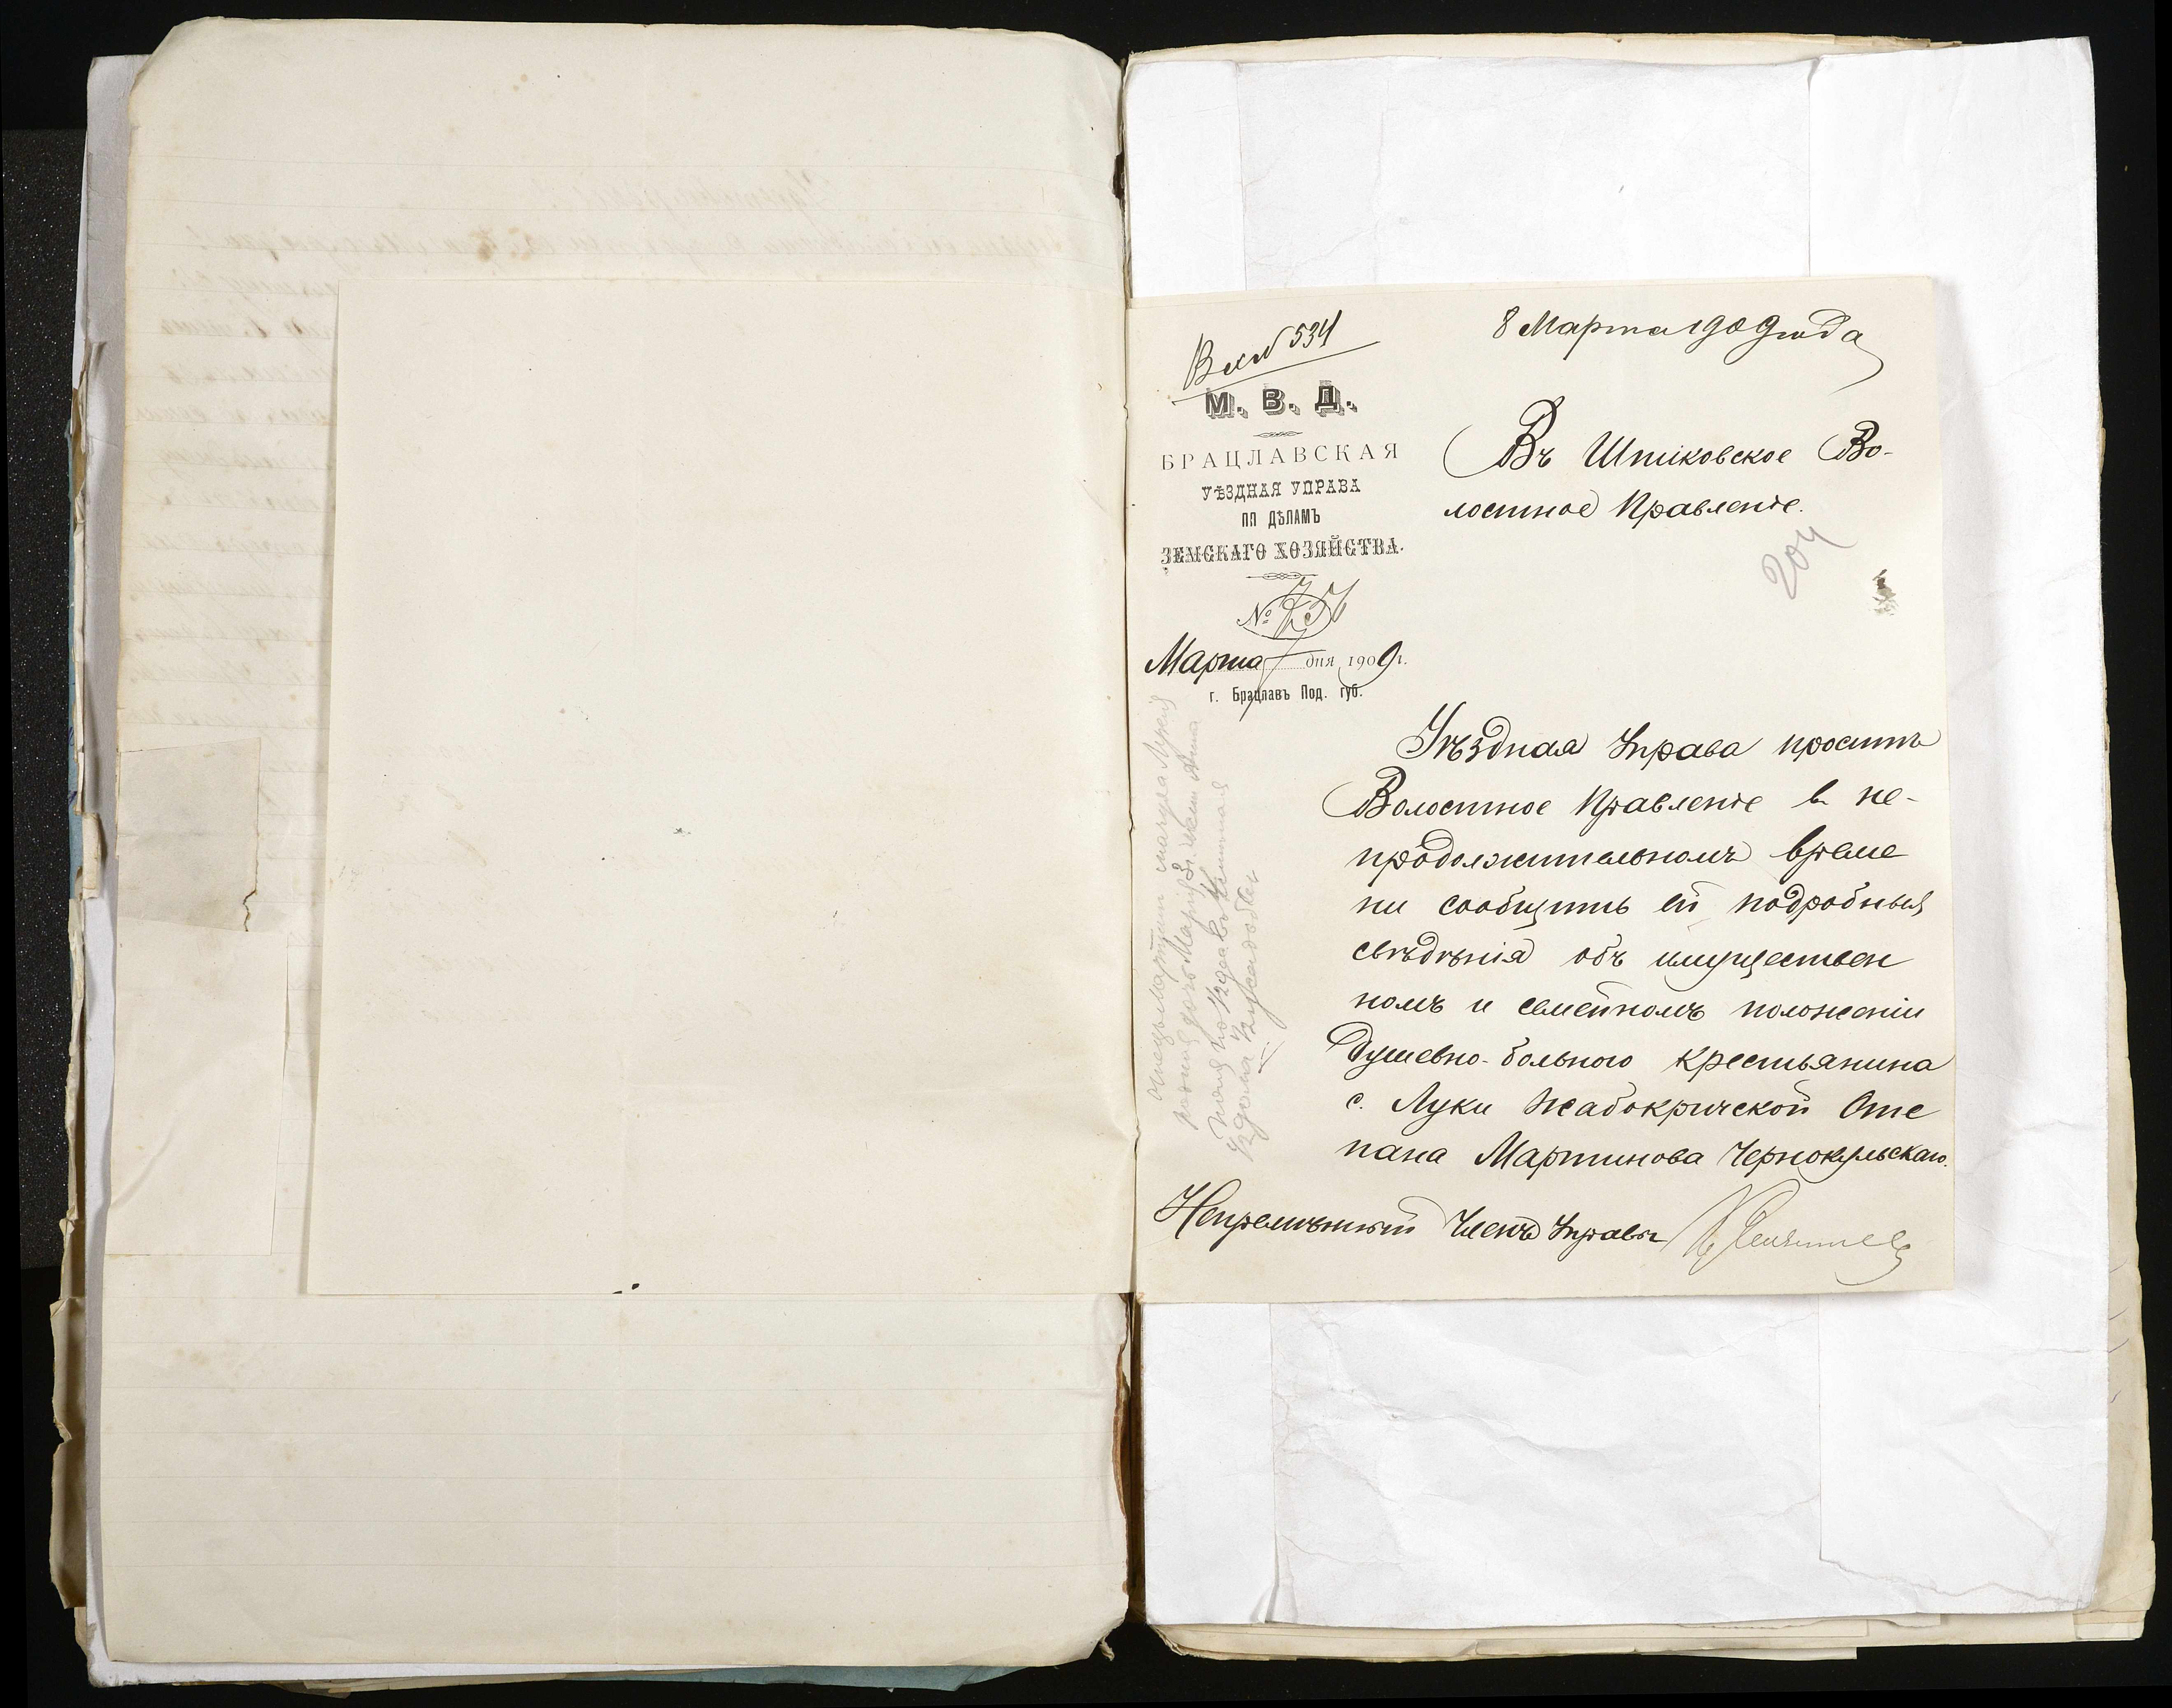 Вх № 534
8 Марта 1909 года
М. В. Д.
БРАЦЛАВСКАЯ
УѢЗДНАЯ УПРАВА
ПП ДѢЛАМЪ
ЗЕМСКАГО ХОЗЯЙСТВА.
№
Марта 7 дня 1909 г.
г. Брацлавъ Под. губ.
Въ Шпиковское Во-
лостное Правленіе.
204
Уѣздная Управа проситъ
Волостное Правленіе въ не-
продолжительномъ време
ни сообщить ей подробныя
свѣдѣнія объ имуществен
номъ и семейномъ положеніи
душевно-больного крестьянина
с. Луки Жабокричской Сте
пана Мартинова Чернокульскаго.
Непремѣнный Членъ Управы